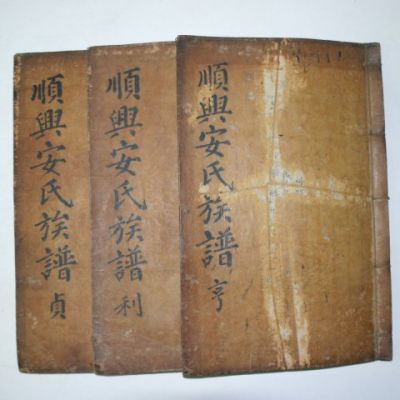 順興安氏族譜 亨
順興安氏族譜 利
順興安氏族譜 貞